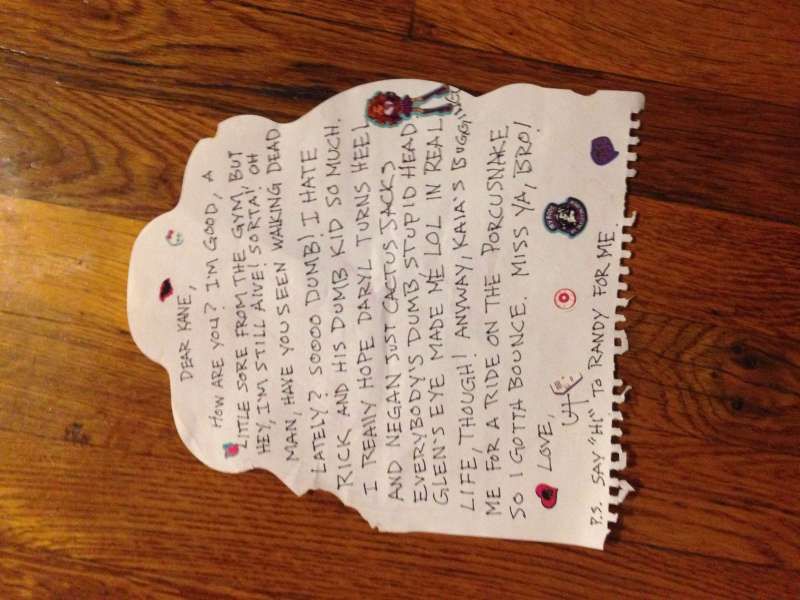 DEAR KANE,
HOW ARE YOU? I'M GOOD, A
LITTLE SORE FROM THE GYM, BUT
HEY, I'M STILL AIVE! SORTA! OH
MAN, HAVE YOU SEEN WALKING DEAD
LATELY? SOOOO DUMB! I HATE
RICK AND HIS DUMB KID SO MUCH.
I REALLY HOPE DARYL TURNS HEEL
AND NEGAN JUST CACTUS JACKS
EVERYBODY'S DUMB STUPID HEAD.
GLEN'S EYE MADE ME LOL IN REAL
LIFE, THOUGH! ANYWAY, KAIA'S BUGGIN'
ME FOR A RIDE ON THE PORCUSNAKE
SO I GOTTA BOUNCE. MISS YA, BRO!
LOVE,
UT
P.S. SAY "HI" TO RANDY FOR ME.